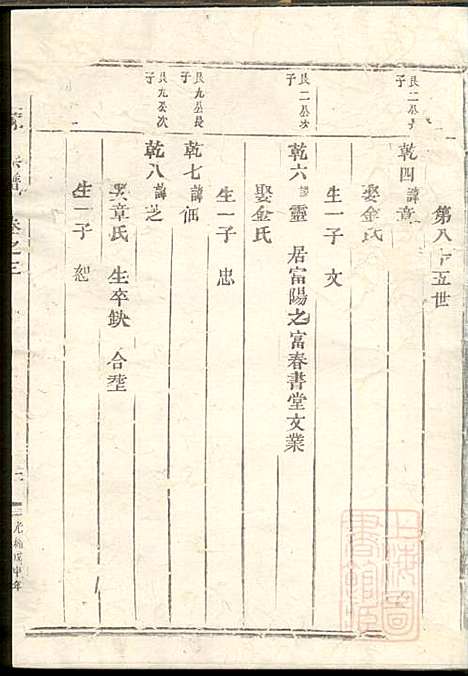 第八十五世
艮二公長子
乾四諱章
娶金氏
生一子 文
艮二公次子
乾六諱靈 居富陽之富春書堂文業
娶金氏
生一子 忠
艮九公長子
乾七諱佃
艮九公次子
乾八諱芝
娶章氏 生卒缺 合塟
生一子 恕
宗譜 卷之三
光緒戊申年